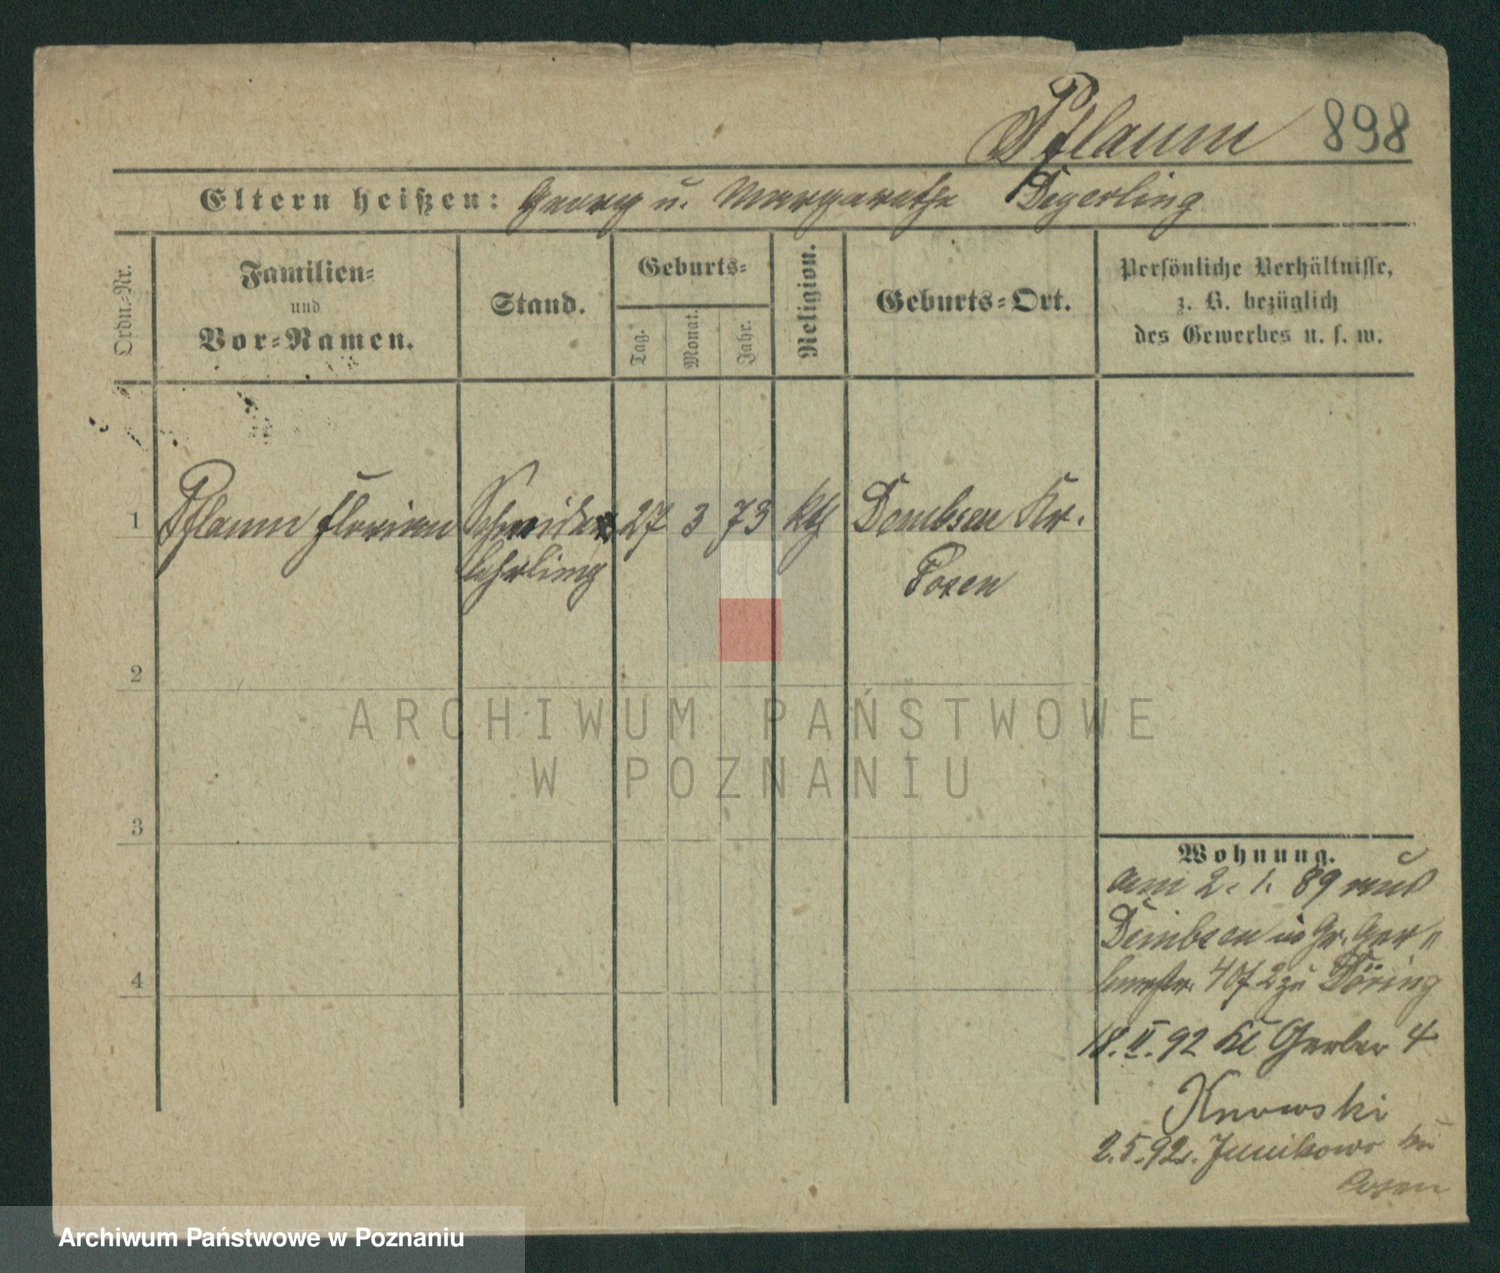 Pflaum 898
Eltern heißen: Georg u. Margarethe Degerling
Ordn.-Nr.
Familien-
und
Vor-Namen.
Stand.
Geburts-
Tag.
Monat.
Jahr.
Religion.
Geburts-Ort.
Persönliche Verhältnisse,
z. B. bezüglich
des Gewerbes u. s. w.
1 Pflaum Florian Schneider 27 3 73 kth Dembsen Kr.
lehrling Posen
2
ARCHIWUM PAŃSTWOWE
W POZNANIU
3
Wohnung.
am 2. 1. 89 aus
Dembsen in Gr. Ger„
berstr. 40/2 zu Döring
4
18. II. 92 Kl Gerber 4
2.5.92. Junikowo bei
Posen
Archiwum Państwowe w Poznaniu